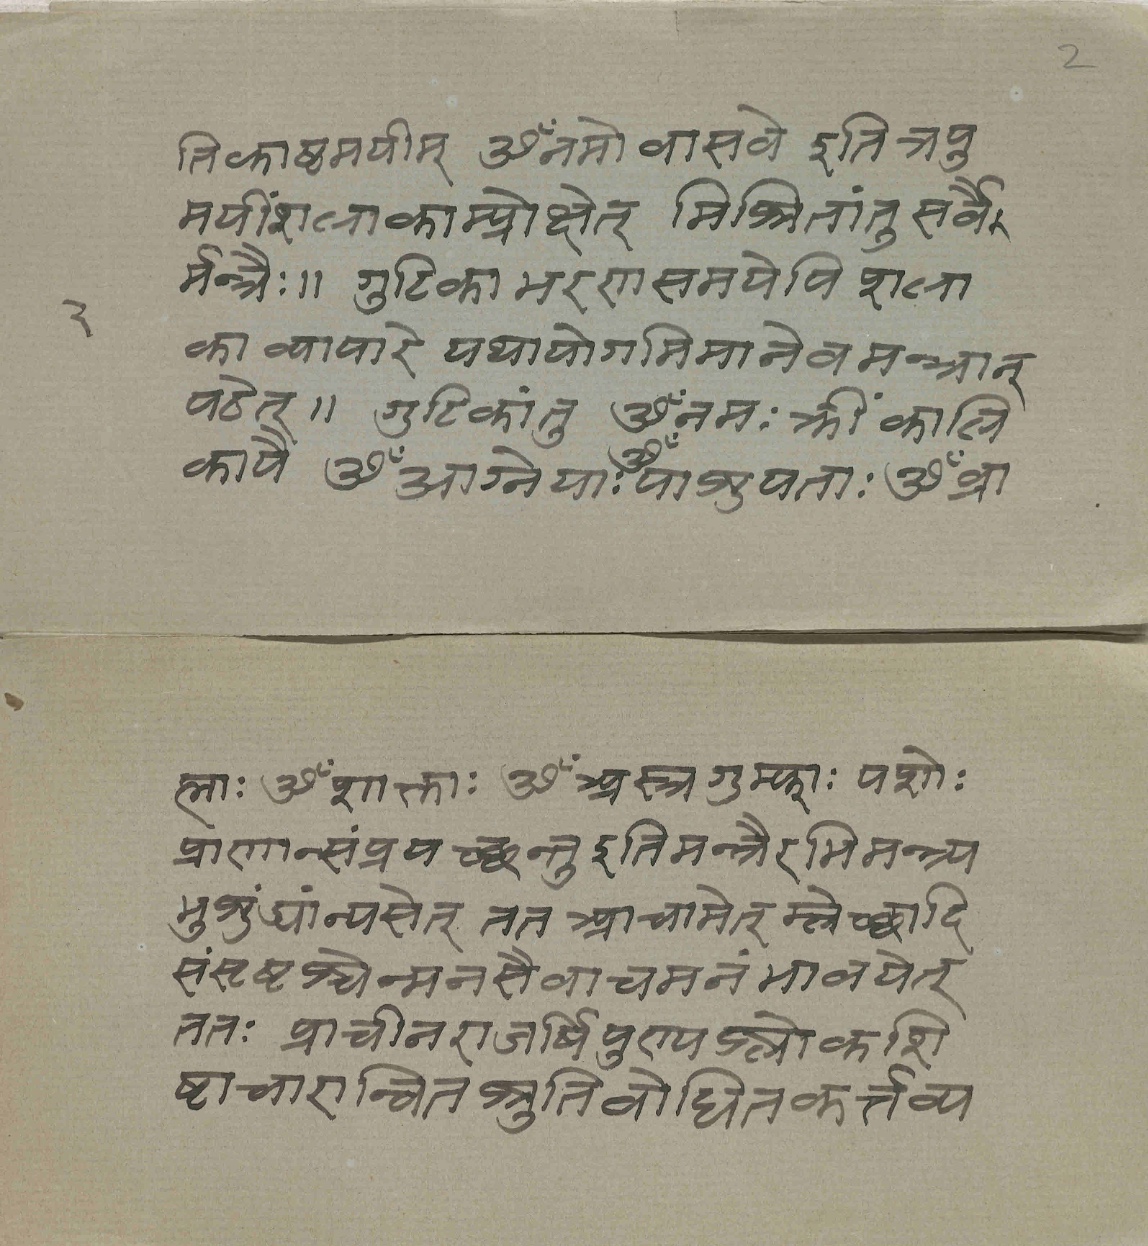 2
तिकाष्ठमयीम् ॐनमो वासवे इति त्रपु
मयींशलाकाम्प्रोक्षेत् मिश्रितांतु सर्वैर्
र्मन्त्रैः॥ गुटिकाभरणसमयेपि शला
का व्यापारे यथायोगमिमानेव मन्त्रान्
पठेत्॥ गुटिकांतु ॐनमः क्रीं कालि
कायै ॐआग्नेयाः ॐपाशुपताः ॐब्रा
२
ह्माः ॐशाक्ताः ॐअस्त्रगुम्फाः पशोः
प्राणान्संप्रयच्छन्तु इतिमन्त्रैरभिमन्त्र्य
भुशुंड्यांन्यसेत् तत आचामेत् म्लेच्छादि
संसृष्टश्चेन्मनसैवाचमनं भावयेत्
ततः प्राचीनराजर्षिपुण्यश्लोकशि
ष्टाचारान्वितश्रुतिबोधितकर्त्तव्य